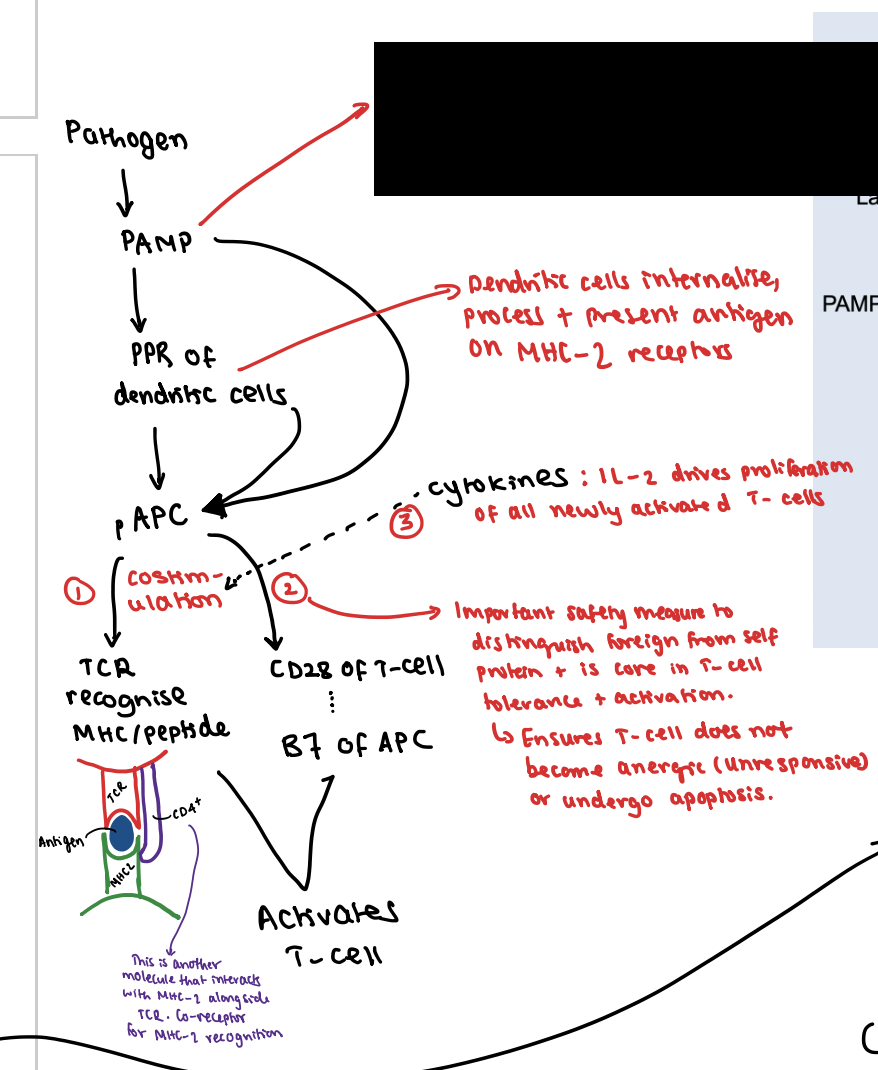 Pathogen
PAMP
PPR of
dendritic cells
pAPC
Dendritic cells internalise,
process + present antigen
on MHC-2 receptors
La
PAMP
cytokines : IL-2 drives proliferation
of all newly activated T-cells
3
1
costim-
ulation
2
Important safety measure to
distinguish foreign from self
protein + is core in T-cell
tolerance + activation.
↳ Ensures T-cell does not
become anergic (unresponsive)
or undergo apoptosis.
TCR
recognise
MHC/peptide
CD28 of T-cell
B7 of APC
TCR
CD4+
Antigen
MHC2
Activates
T-cell
This is another
molecule that interacts
with MHC-2 alongside
TCR. Co-receptor
for MHC-2 recognition